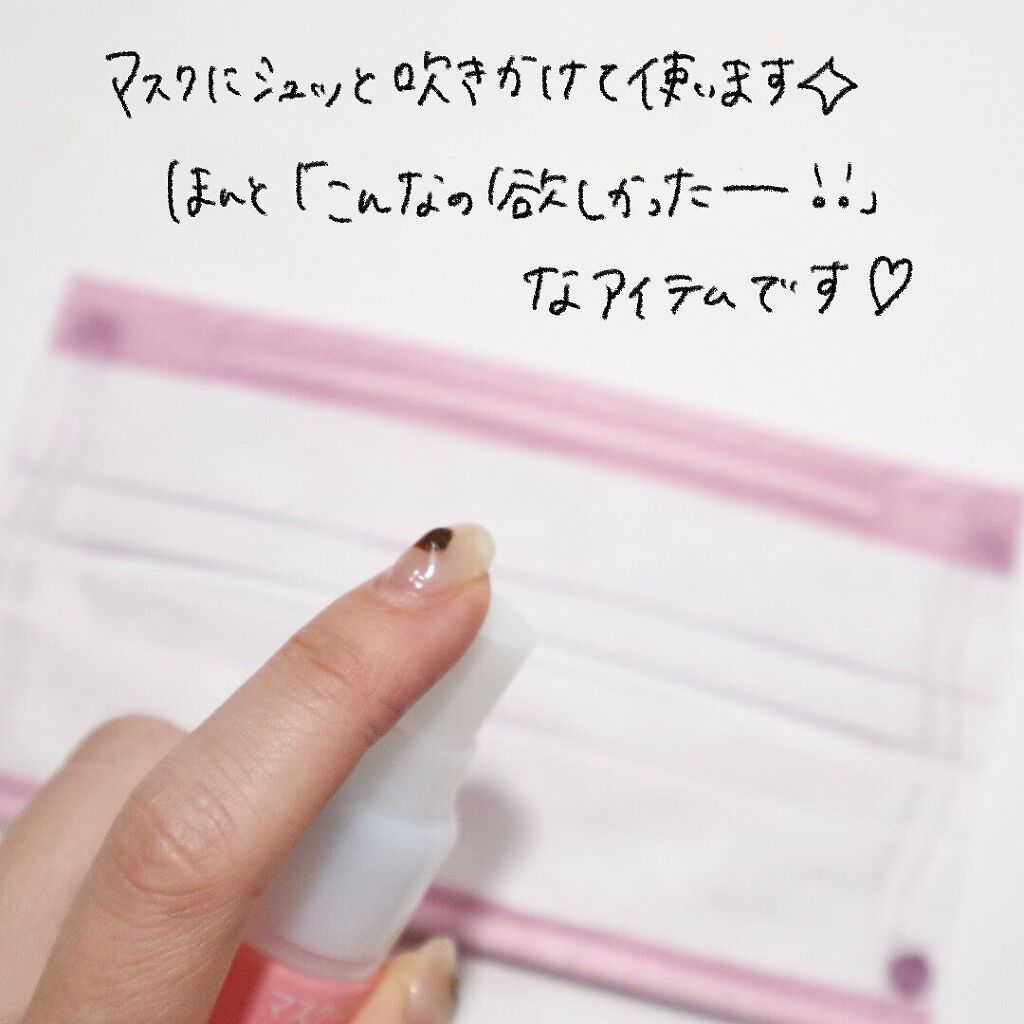 マスクにシュッと吹きかけて使います✧
ほんと「こんなの欲しかったー!!」
なアイテムです♡
マス